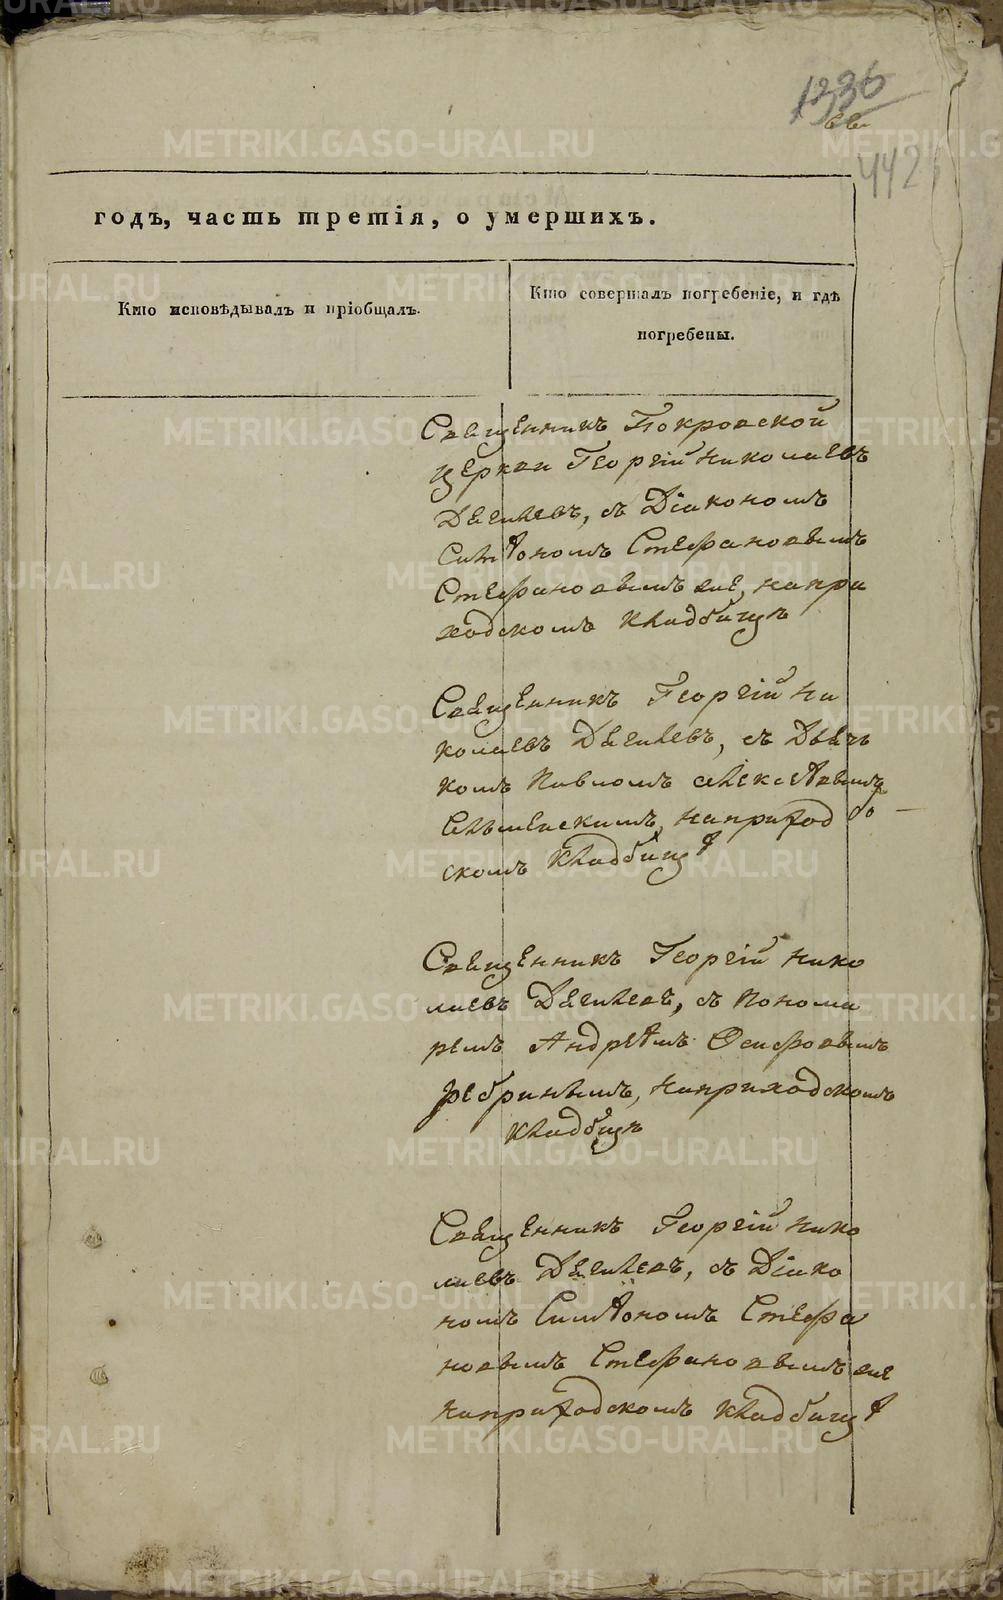 1336
442
годъ, часть третія, о умершихъ.
Кто исповѣдывалъ и пріобщалъ.
Кто совершалъ погребеніе, и гдѣ
погребены.
Священникъ Покровской
церкви Георгій Николаевъ
Дягилевъ, съ Діакономъ
Симѣономъ Стефановымъ
Стефановымъ же, на при
ходскомъ кладбищѣ
Священникъ Георгій Ни
колаевъ Дягилевъ, съ Дьяч
комъ Павломъ Алексѣевымъ
на приход
скомъ кладбищѣ
Священникъ Георгій Нико
лаевъ Дягилевъ, съ Понома
ремъ Андреѣмъ Осиповымъ
Ребринымъ, на приходскомъ
кладбищѣ
Священникъ Георгій Нико
лаевъ Дягилевъ, съ Діако
номъ Симѣономъ Стефа
новымъ Стефановымъ же
на приходскомъ кладбищѣ
METRIKI.GASO-URAL.RU